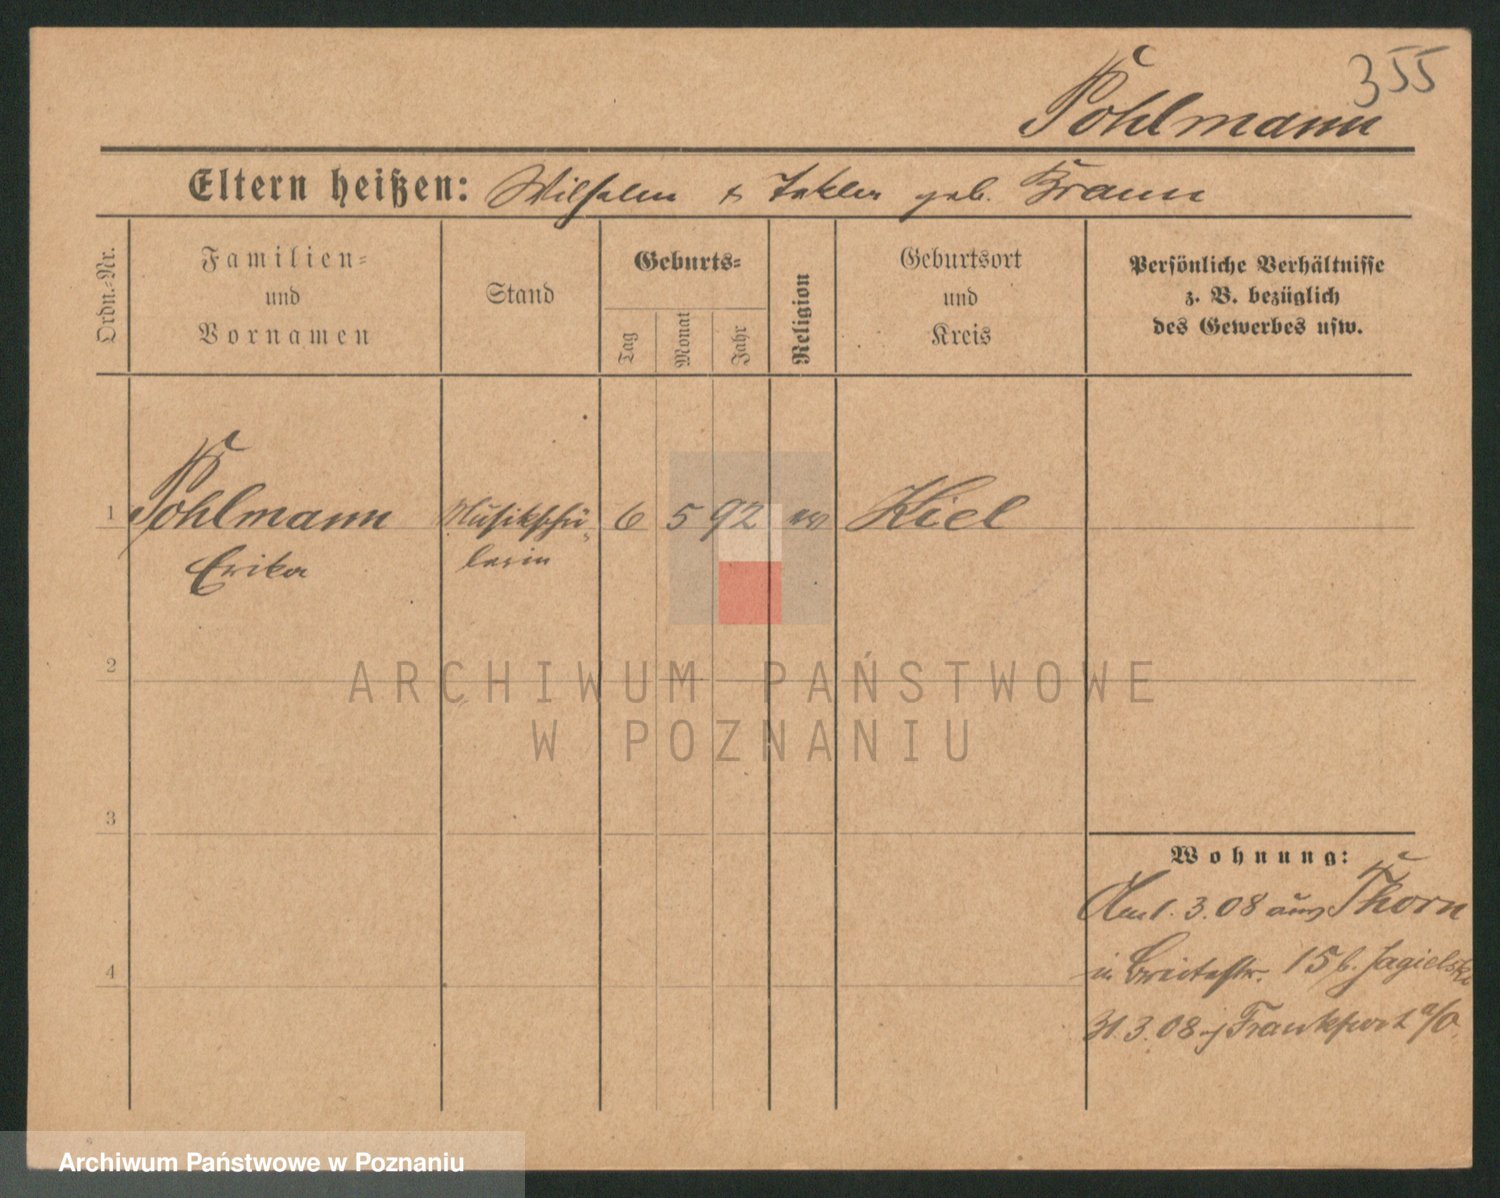 355
Pohlmann
Eltern heißen: Wilhelm & Tekla geb. Braun
Ordn.-Nr.
Familien- und Vornamen
Stand
Geburts-
Tag
Monat
Jahr
Religion
Geburtsort und Kreis
Persönliche Verhältnisse
z. B. bezüglich
des Gewerbes usw.
1 Pohlmann Musikschü- 6 5 92 ev Kiel
Erika lerin
2
ARCHIWUM PAŃSTWOWE
W POZNANIU
3
Wohnung:
3.08 aus Thorn
4
in Breitestr. 15 b. Jagielski
31.3.08 Frankfurt a/O.
Archiwum Państwowe w Poznaniu